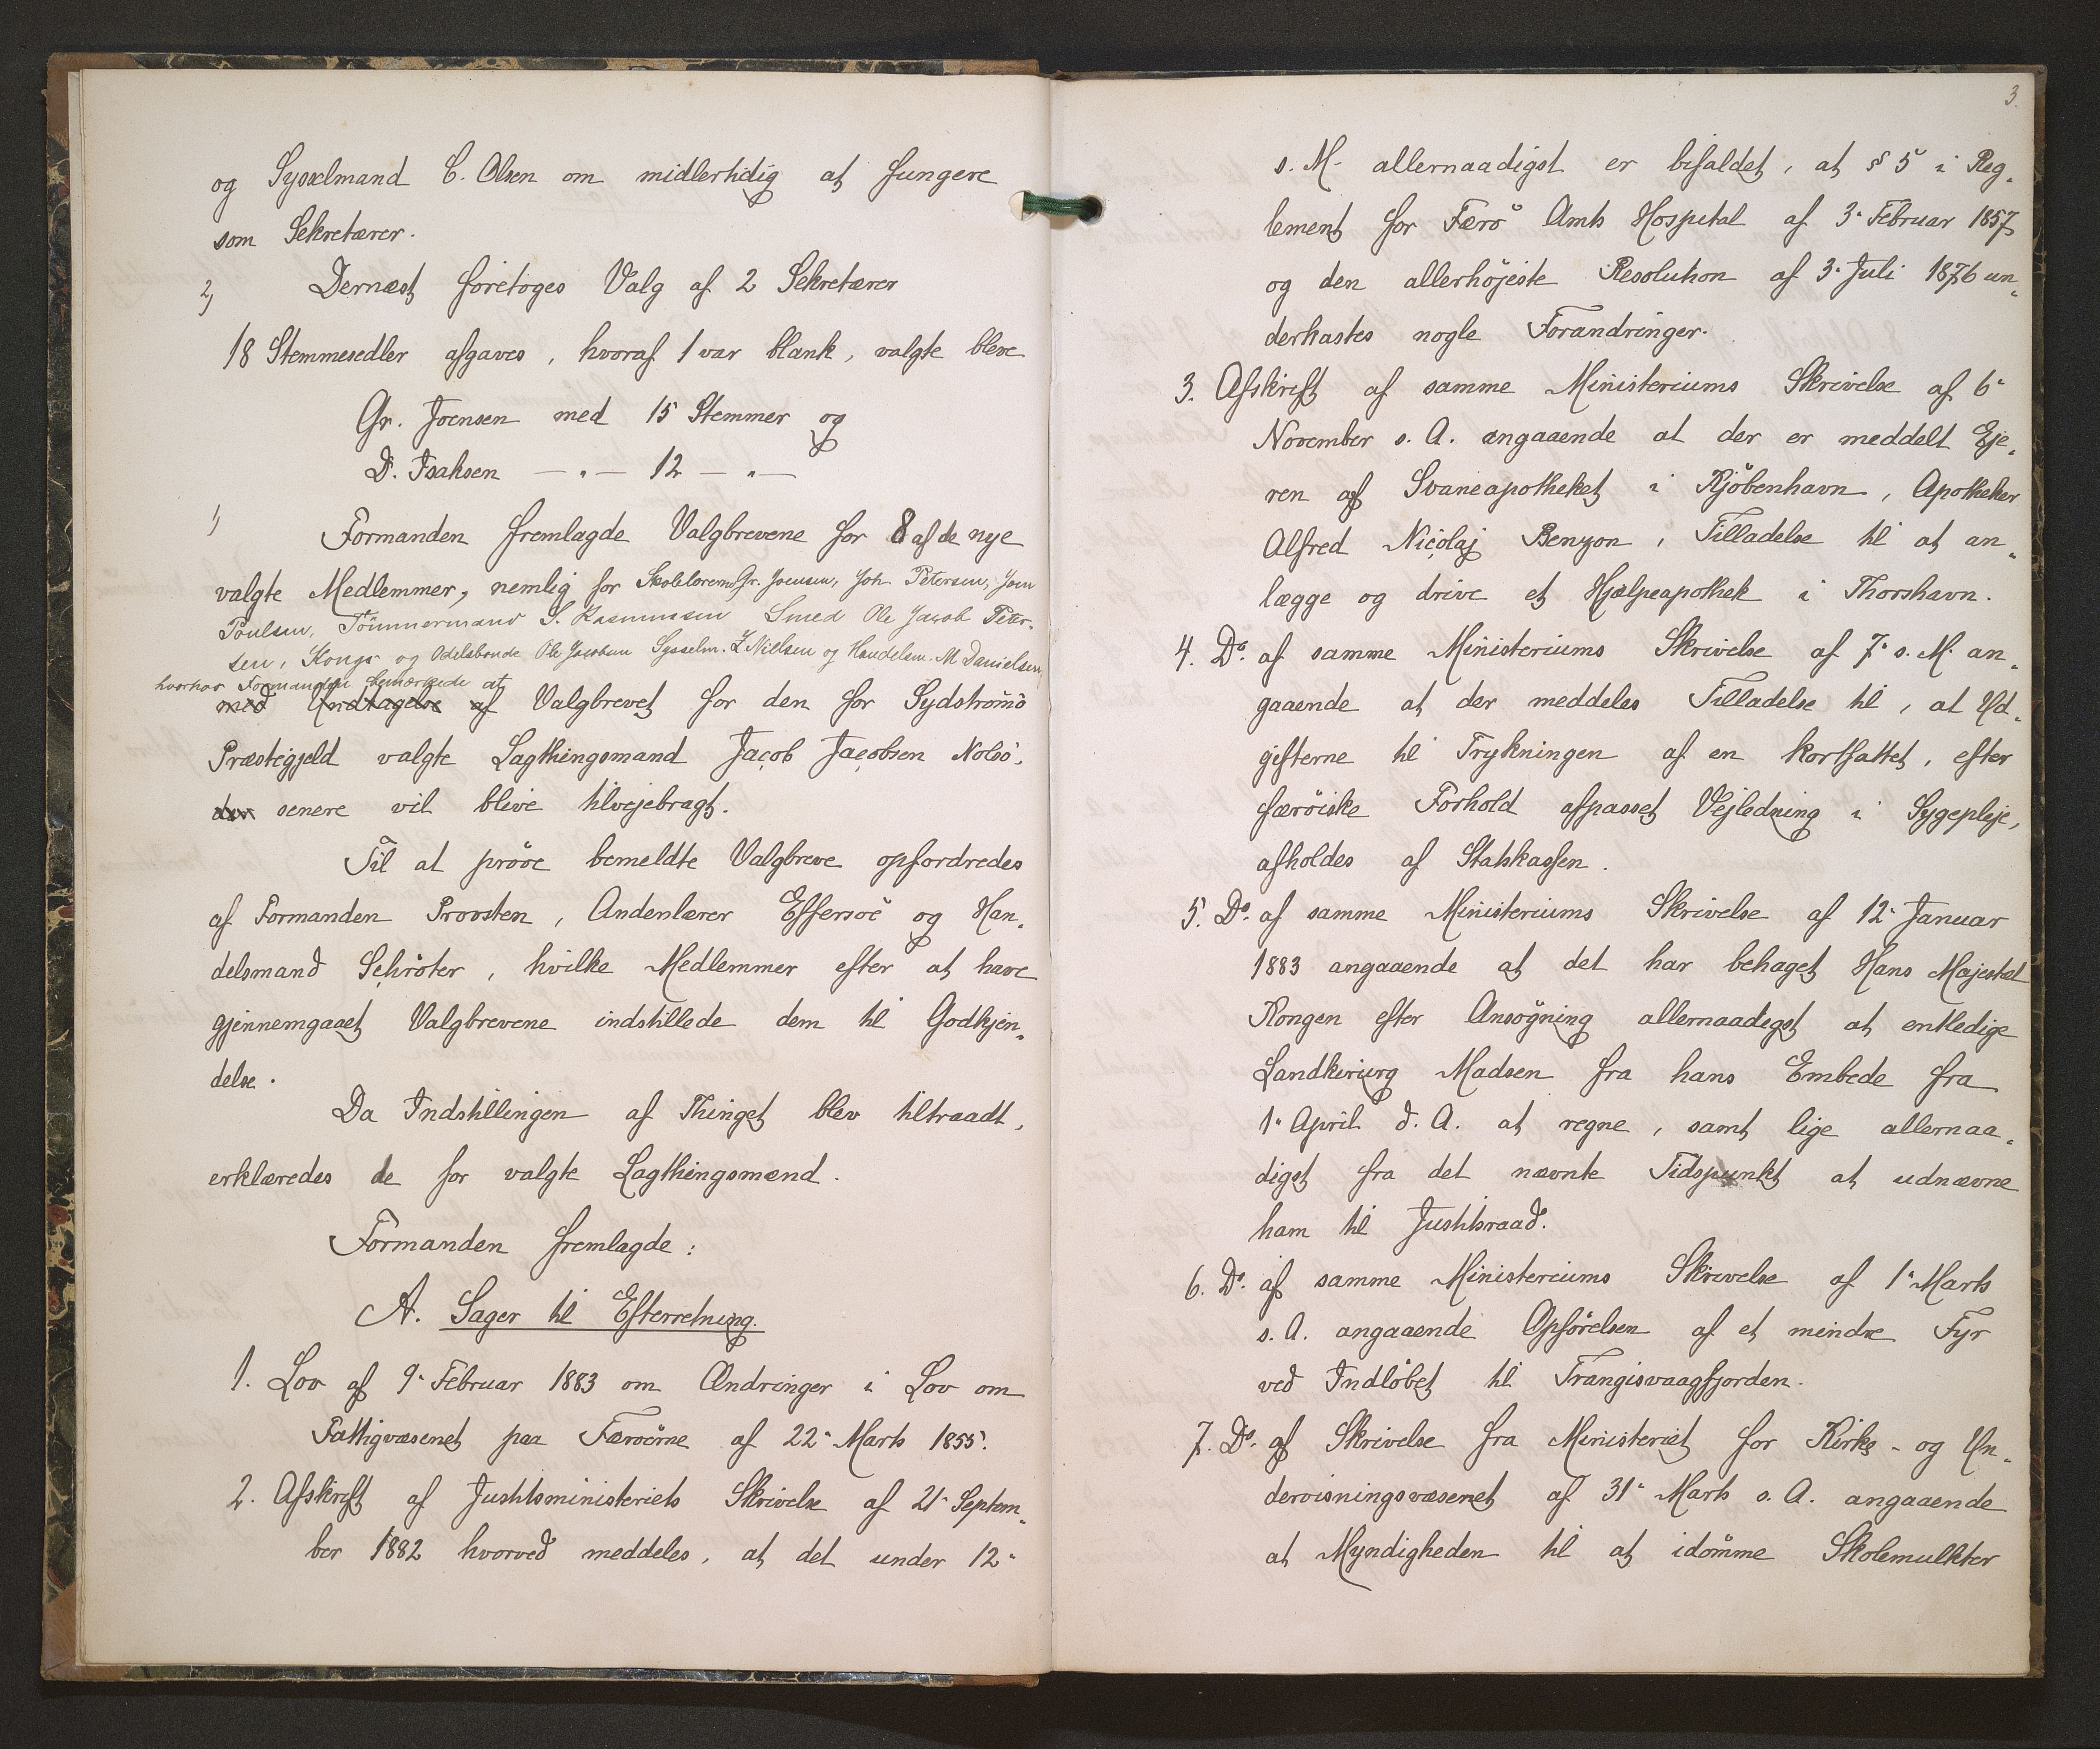 og Sysselmand C. Olsen om midlertidig at fungere
som Sekretærer.
2) Dernæst foretoges Valg af 2 Sekretærer
18 Stemmesedler afgaves, hvoraf 1 var blank, valgte bleve
Gr. Joensen med 15 Stemmer og
D. Isaksen —„— 12 —„—
1) Formanden fremlagde Valgbrevene for 8 af de nye
valgte Medlemmer, nemlig for Skolelærerne Gr. Joensen, Joh. Petersen, Joen
Poulsen, Tömmermand S. Rasmussen Smed Ole Jacob Peter-
sen, Kongs- og Odelsbonde Ole Jacobsen Sysselm. Z Nielsen og Handelsm. M Danielsen,
hvorhos Formanden bemærkede at
med Undtagelse af Valgbrevet for den for Sydströmö
Præstegjeld valgte Lagthingsmand Jacob Jacobsen Nolsö,
der senere vil blive tilvejebragt.
Til at pröve bemeldte Valgbreve opfordredes
af Formanden Provsten, Andenlærer Effersöe og Han-
delsmand Schröter, hvilke Medlemmer efter at have
gjennemgaaet Valgbrevene indstillede dem til Godkjen-
delse.
Da Indstillingen af Thinget blev tiltraadt,
erklæredes de for valgte Lagthingsmænd.
Formanden fremlagde:
A. Sager til Efterretning.
1. Lov af 9. Februar 1883 om Ændringer i Lov om
Fattigvæsenet paa Færöerne af 22. Marts 1855.
2. Afskrift af Justitsministeriets Skrivelse af 21. Septem-
ber 1882 hvorved meddeles, at det under 12.
3.
s. M. allernaadigst er bifaldet, at § 5 i Reg-
lement for Færö Amts Hospital af 3. Februar 1857
og den allerhöjeste Resolution af 3. Juli 1876 un-
derkastes nogle Forandringer.
3. Afskrift af samme Ministeriums Skrivelse af 6.
November s. A. angaaende at der er meddelt Eje-
ren af Svaneapotheket i Kjöbenhavn, Apotheker
Alfred Nicolaj Benzon, Tilladelse til at an-
lægge og drive et Hjælpeapothek i Thorshavn.
4. Do. af samme Ministeriums Skrivelse af 7. s. M. an-
gaaende at der meddeles Tilladelse til, at Ud-
gifterne til Trykningen af en kortfattet, efter
færöiske Forhold afpasset Vejledning i Sygepleje,
afholdes af Statskassen.
5. Do. af samme Ministeriums Skrivelse af 12. Januar
1883 angaaende at det har behaget Hans Majestæt
Kongen efter Ansögning allernaadigst at entledige
Landkirurg Madsen fra hans Embede fra
1. April d. A. at regne, samt lige allernaa-
digst fra det nævnte Tidspunkt at udnævne
ham til Justitsraad.
6. Do. af samme Ministeriums Skrivelse af 1. Marts
s. A. angaaende Opförelsen af et mindre Fyr
ved Indlöbet til Trangisvaagfjorden.
7. Do. af Skrivelse fra Ministeriet for Kirke- og Un-
dervisningsvæsenet af 31. Marts s. A. angaaende
at Myndigheden til at idömme Skolemulkter